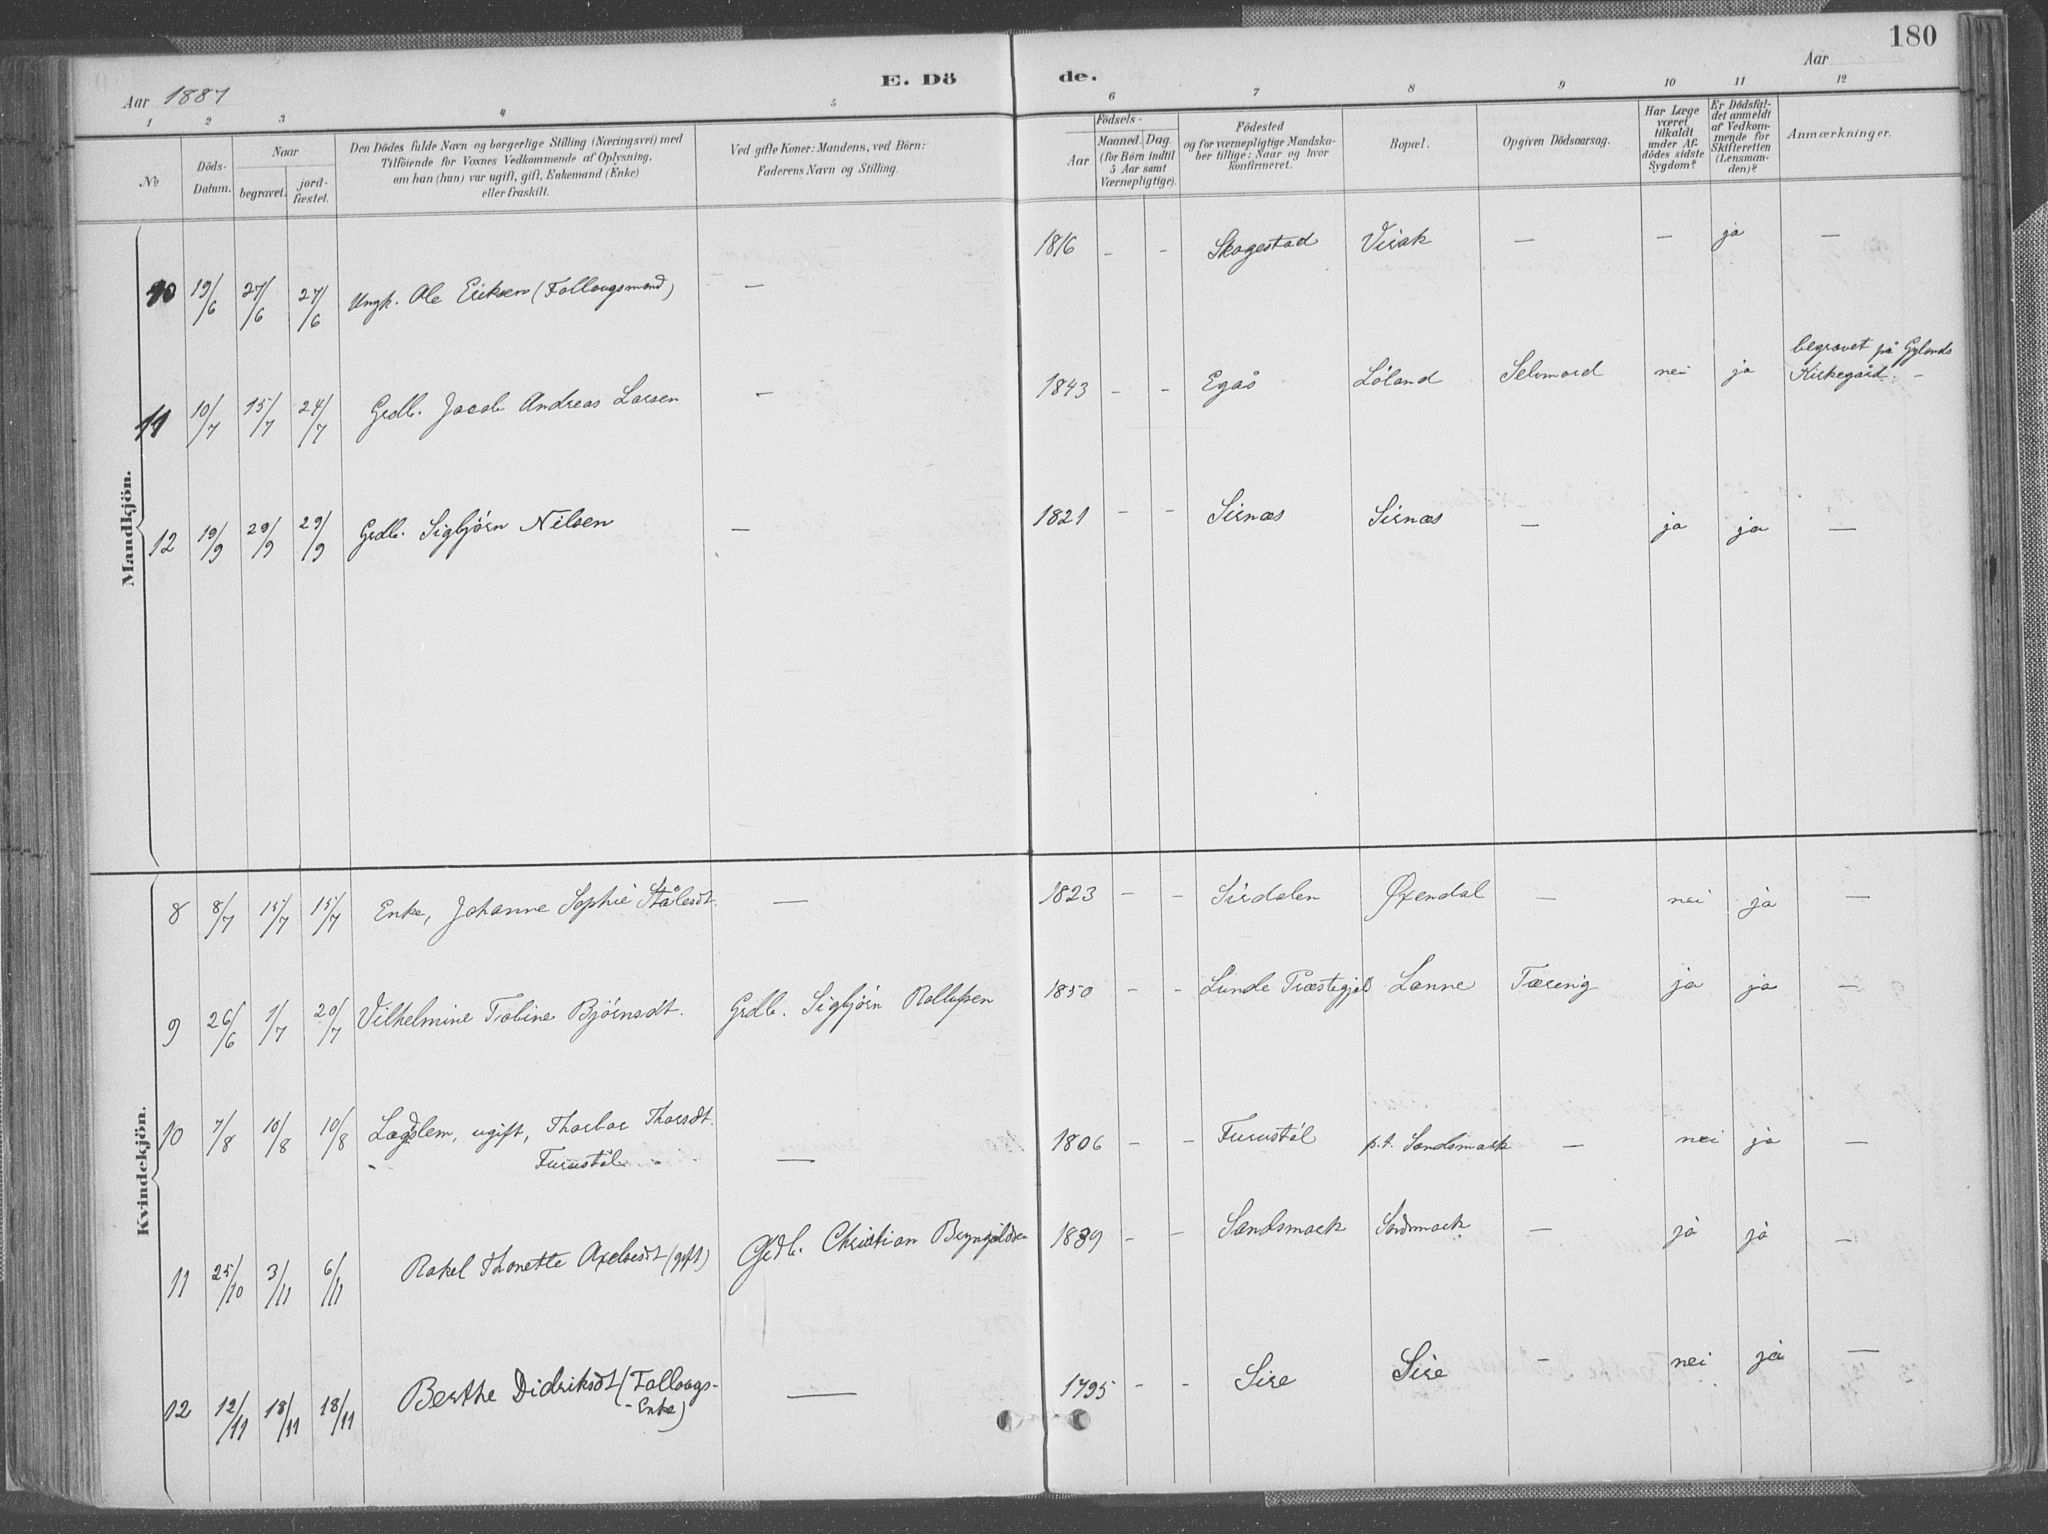 180
Aar 1887
E. Dö
de.
Aar
1 2 3 4 5 6 7 8 9 10 11 12
No
Döds-
Datum.
Naar
begravet.
jord-
fæstet.
Den Dödes fulde Navn og borgerlige Stilling (Næringsvei) med
Tilföiende for Voxnes Vedkommende af Oplysning,
om han (hun) var ugift, gift, Enkemand (Enke)
eller fraskilt.
Ved gifte Koner: Mandens, ved Börn:
Faderens Navn og Stilling.
Födsels-
Aar
Maaned. Dag
(for Börn indtil
5 Aar samt
Værnepligtige).
Födested
og for værnepligtige Mandska-
ber tillige: Naar og hvor
konfirmeret.
Bopæl.
Opgiven Dödsaarsag.
Har Læge
været
tilkaldt
under Af-
dödes sidste
Sygdom?
Er Dödsfal-
det anmeldt
af Vedkom-
mende for
Skifteretten
(Lensman-
den)?
Anmærkninger.
Mandkjön.
10 19/6 27/6 27/6 Ungk. Ole Eriksen (Follaugsmand) — 1816 - - Skagestad Virak — — ja —
11 10/7 15/7 24/7 Grdb. Jacob Andreas Larsen — 1843 - - Egås Löland Selvmord nei ja begravet på Gylands
Kirkegård. —
12 19/9 29/9 29/9 Grdb. Sigbjörn Nilsen — 1821 - - Sirnæs Sirnæs — ja ja —
Kvindekjön.
8 8/7 15/7 15/7 Enke, Johanne Sophie Stålesdt. — 1823 - - Sirdalen Øxendal — nei ja —
9 26/6 1/7 20/7 Vilhelmine Tobine Bjørnsdt. Grdb. Sigbjörn Rollufsen 1850 - - Lunde Præstegjeld Lanne Tæring ja ja —
10 7/8 10/8 10/8 Lægdslem, ugift, Thorbor Thorsdt.
Furustöl — 1806 - - Furustöl p.t. Sandsmark — nei ja —
11 25/10 3/11 6/11 Rakel Thonette Axelsdt (gift) Grdb. Christian Bryngeldsen 1839 - - Sandsmark Sandsmark — ja ja —
12 12/11 18/11 18/11 Berthe Didriksdt (Follougs-
-Enke) — 1795 - - Sire Sire — nei ja —